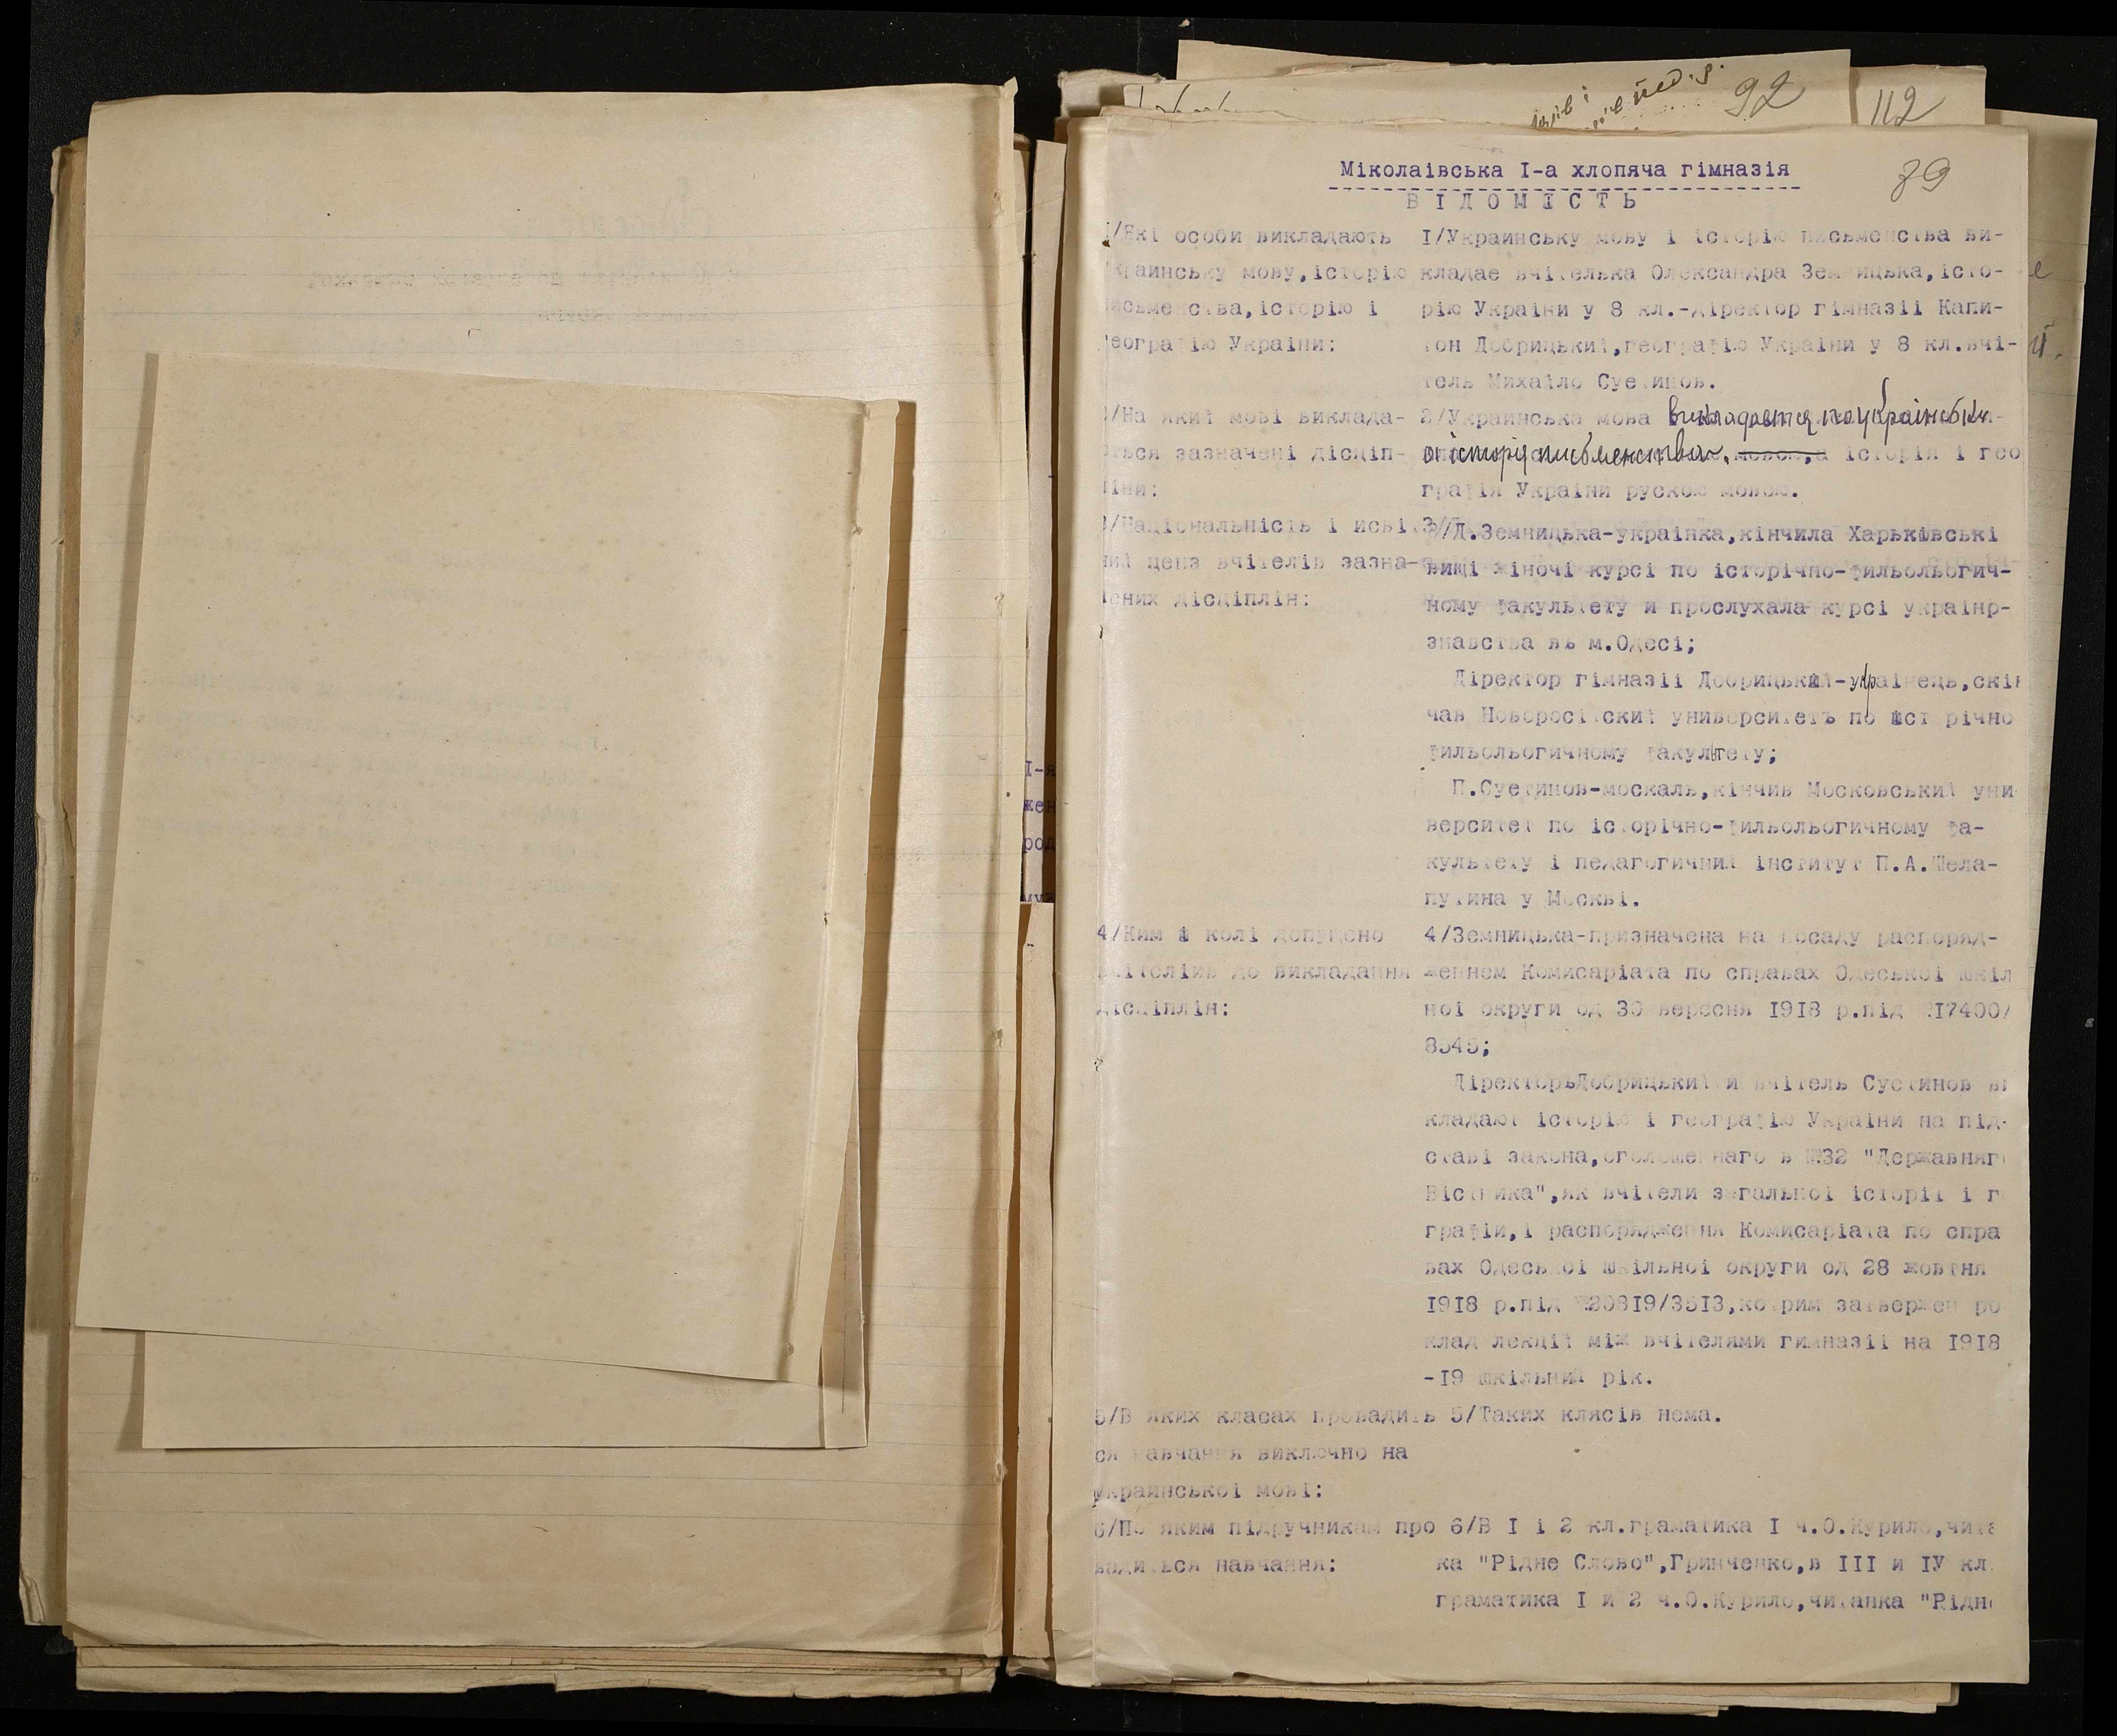 92
112
89
Міколаівська I-а хлопяча гімназія
ВІДОМІСТЬ
/Які особи викладають
краинську мову,історію
исьменства,історію і
еографію Украіни:
I/Украинську мову і історію письменства ви-
кладае вчітелька Олександра Земницька,істо-
рію Украіни у 8 кл.-діректор гімназіі Капи-
тон Добрицький,географію Украіни у 8 кл.вчі-
тель Михаіло Суетинов.
/На якиї мові виклада-
ться зазначені дісціп-
ліни:
2/Украинська мова викладаєтця поукраінськи
а історія письменства, мовою,а історія і гео
графія Украіни рускою мовою.
3/Національність і исьві
ний ценз вчітелів зазна-
чених дісціплін:
3/Д.Земницька-украінка,кінчила Харьківські
вищі жіночі курсі по історічно-фильольогич-
ному факультету и прослухала курсі украінр-
знавства въ м.Одесі;
Діректор гімназіі Добрицький-украінець,скін
чав Новоросійский университетъ по історічно
фильольогичному факультету;
П.Суетинов-москаль,кінчив Московський уни
верситет по історічно-фильольогичному фа-
культету і педагогичний інститут П.А.Шела-
путина у Москві.
4/Ким і колі допущено
вчітеліив до викладання
дісціплін:
4/Земницька-призначена на посаду распоряд-
женнем Комисаріата по справах Одеськоі шкіл
ноі округи од 30 вересня 1918 р.під №17400/
8545;
ДіректорьДобрицький и вчітель Суетинов ви
кладают історію і географію Украіни на під-
ставі закона,оголошеннаго в №32 "Державняго
Вістника",як вчітели загальноі історіі і г
графіи,і распорядження Комисаріата по спра
вах Одеськоі шкільноі округи од 28 жовтня
1918 р.під №20819/3513,котрим затвержен ро
клад лекцій між вчітелями гимназіі на 1918
-19 шкільний рік.
5/В яких класах провадить
ся навчання виключно на
украинськоі мові:
5/Таких клясів нема.
6/По яким підручникам про
вадиться навчання:
6/В I і 2 кл.граматика I ч.О.Курило,чита
ка "Рідне Слово",Гринченко,в III и IУ кл.
граматика I и 2 ч.О.Курило,читанка "Рідне